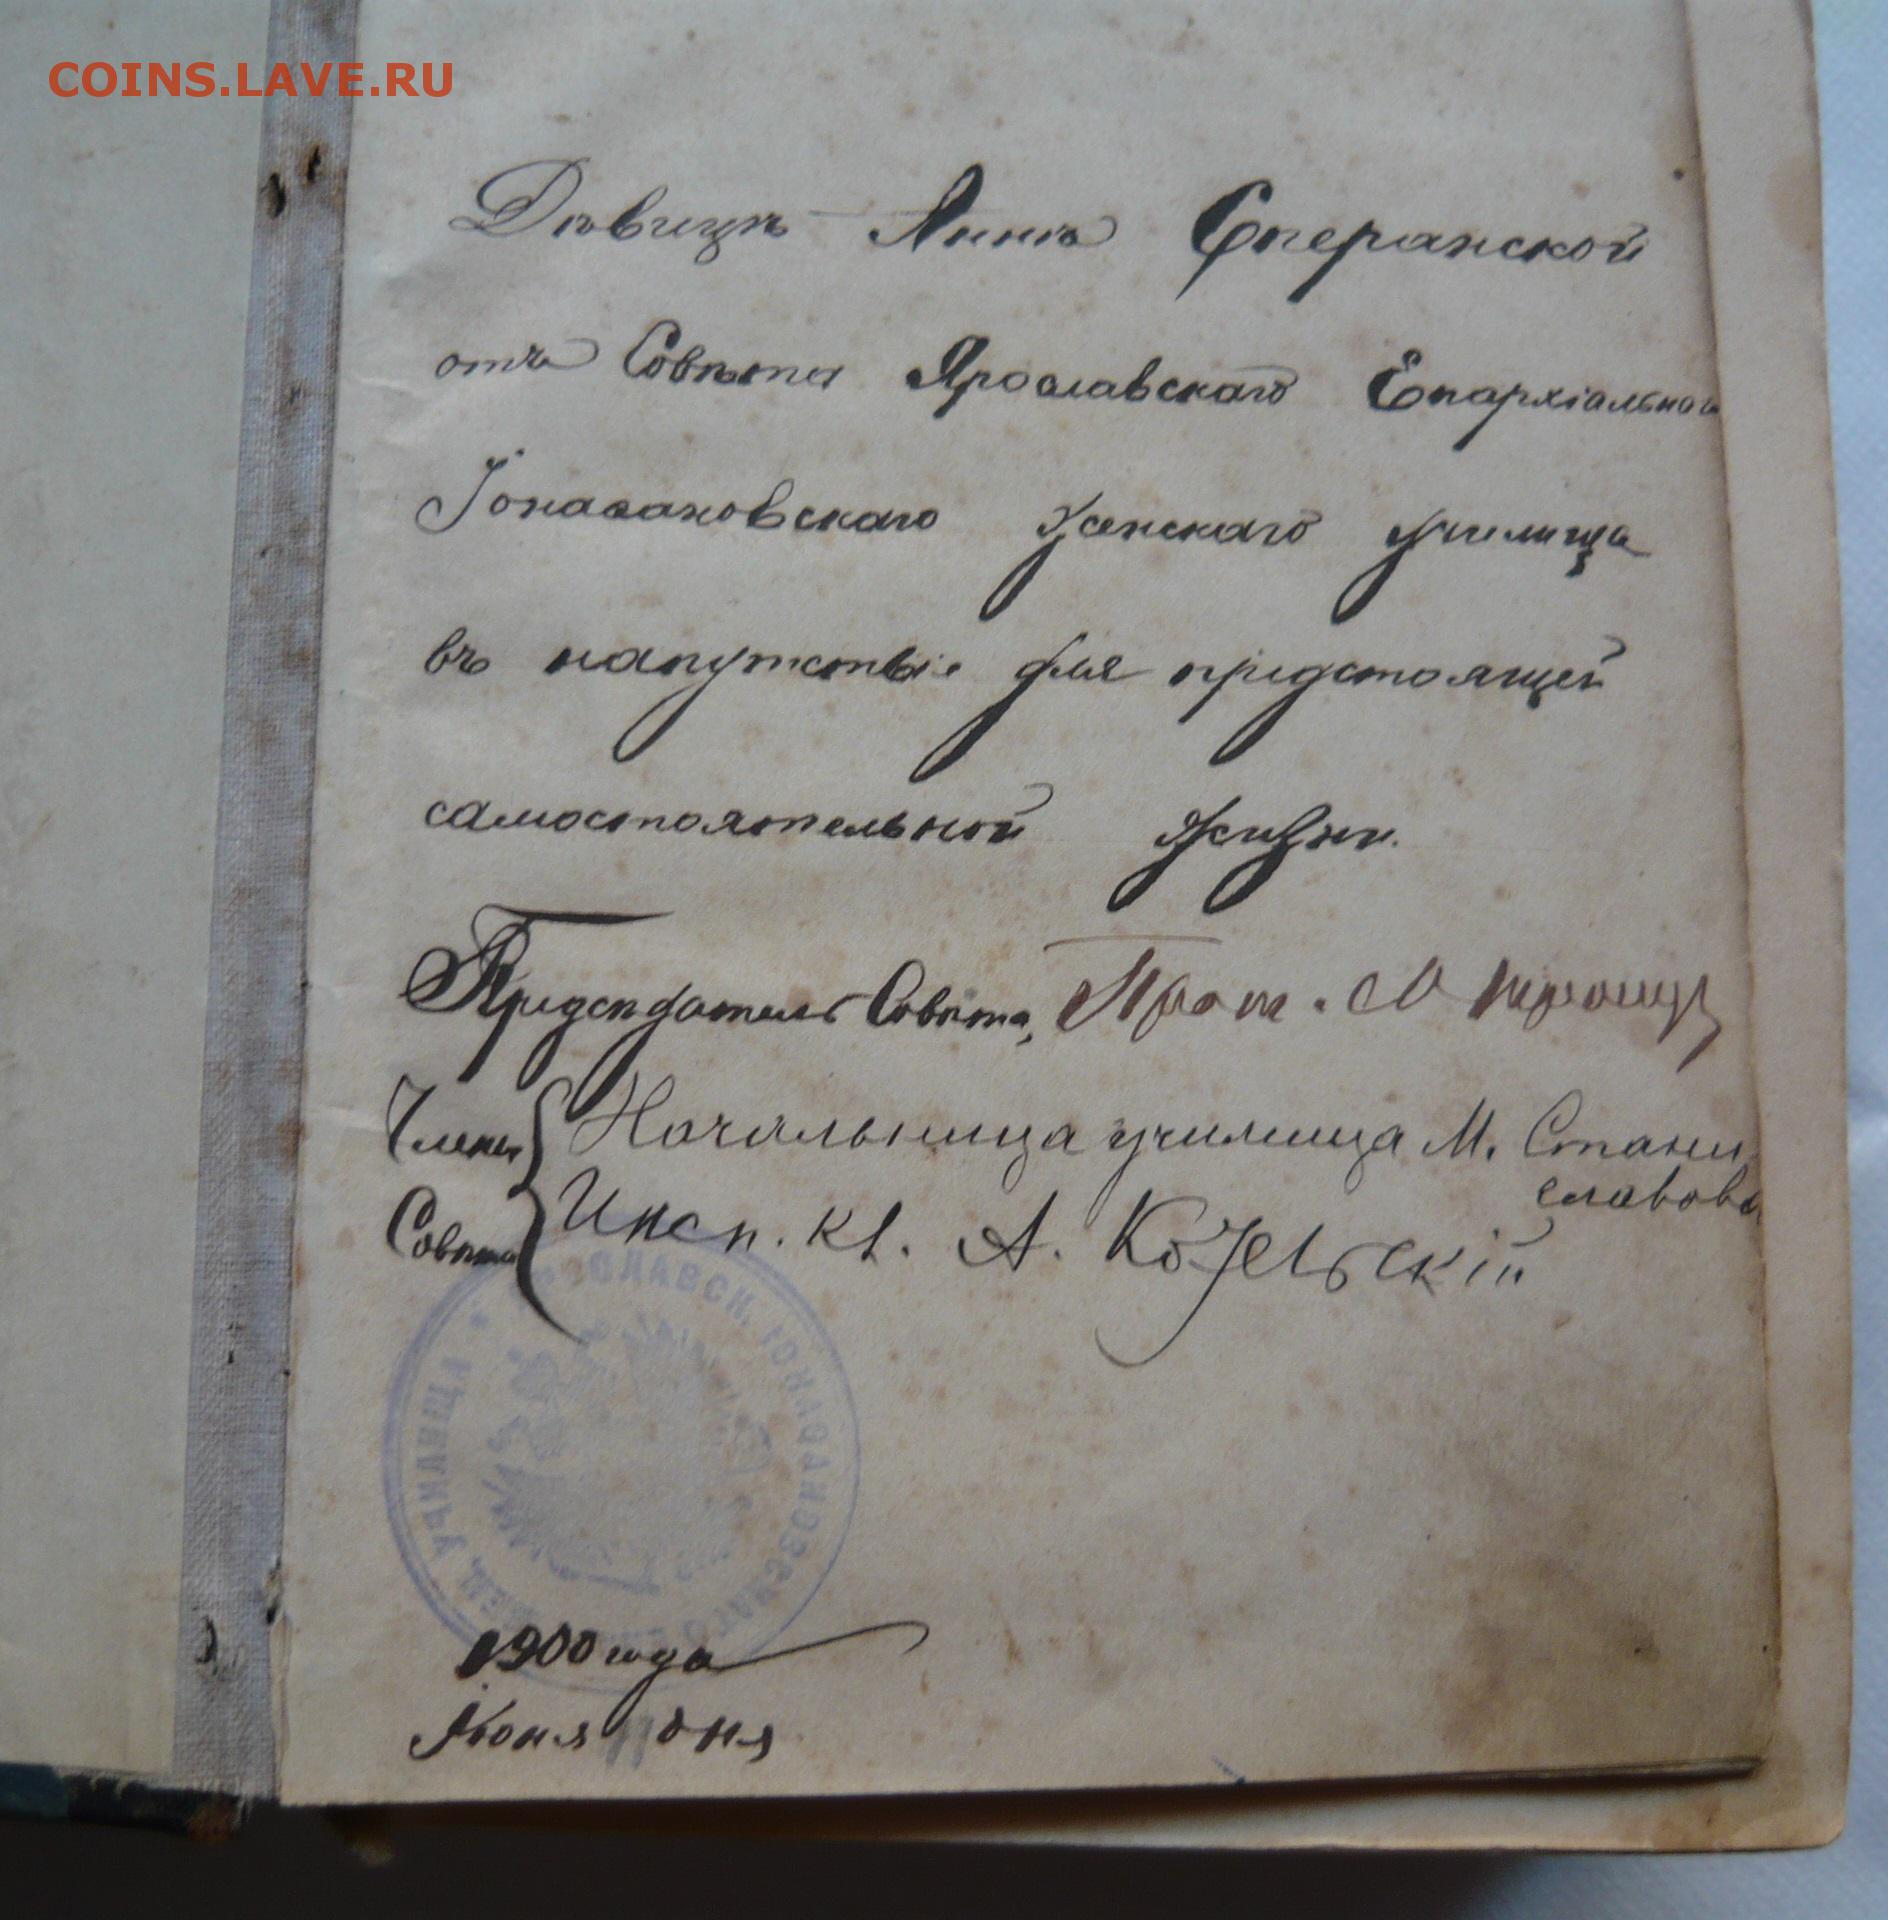 COINS.LAVE.RU
Дѣвицѣ Аннѣ Сперанской
отъ Совѣта Ярославскаго Епархіальнаго
Іонаѳановскаго женскаго училища
въ напутствіе для предстоящей
самостоятельной жизни.
Предсѣдатель Совѣта, Прот. М Троицк
Члены Совѣта
Начальница училища М. Станиславова
Инсп. кл. А. Козельскій
ЯРОСЛАВСК. ІОНАѲАНОВСКАГО УЧИЛИЩА
1900 года
Іюня 11 дня